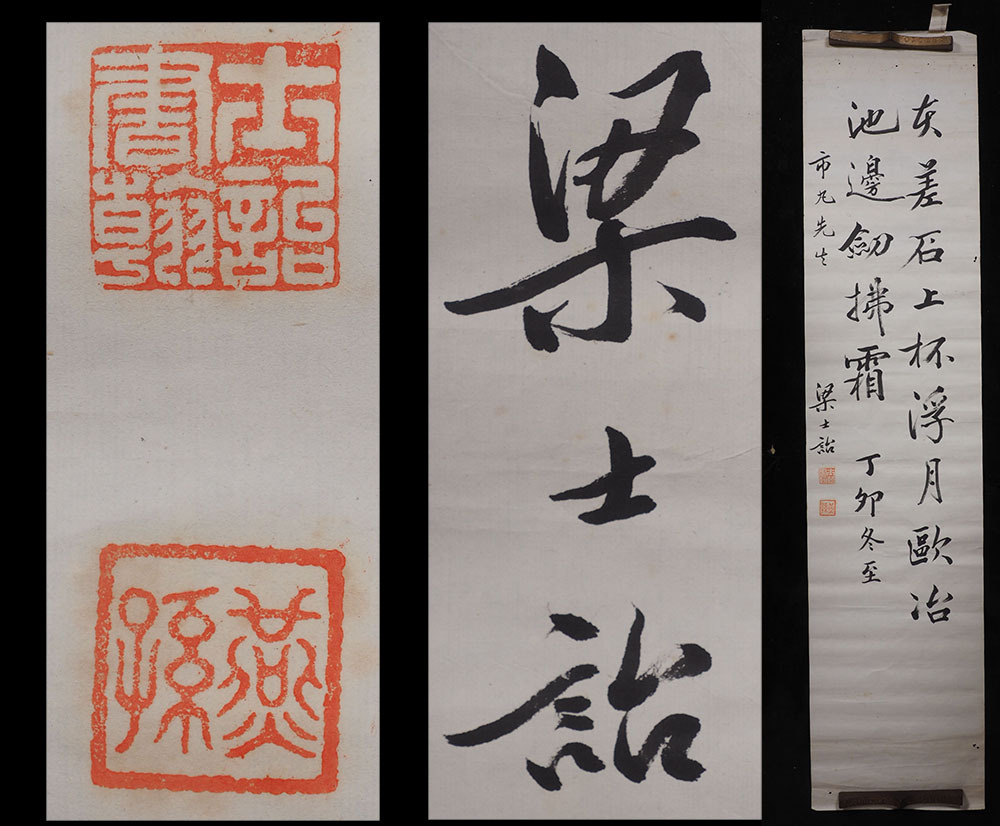 士詒
書翰
燕孫
梁士詒
夫差石上杯浮月歐冶
池邊劒拂霜 丁卯冬至
市丸先生
梁士詒